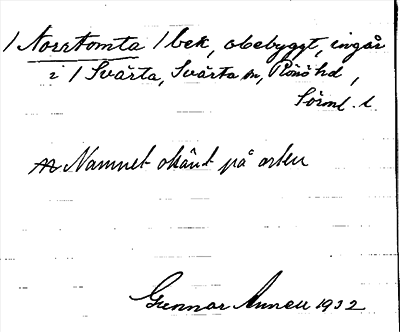 / Norrtomta / bek, obebyggt, ingår
i / Svärta, Svärta sn, Rönö hd,
Sörml. l.
Namnet okänt på orten
Gunnar Annell 1932